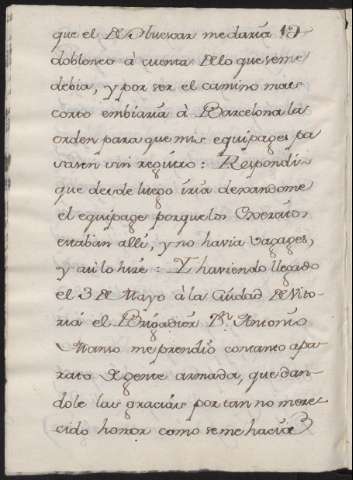 que el D Huescar me daria 15
doblones à cuenta de lo que se me
debia, y por ser el camino mas
corto embiaria à Barcelona la
orden para que mis equipages pa
sasen sin registro: Respondi
que desde luego iria dexandome
el equipage porque los Exercitos
estaban alli, y no havia vagages,
y asi lo hise: Y haviendo llegado
el 3 de Mayo à la Ciudad de Vito-
ria el Brigadier Dn. Antonio
Manso me prendiò con tanto apa
rato de gente armada, que dan-
dole las gracias por tan no mere-
cido honor como se me hacia